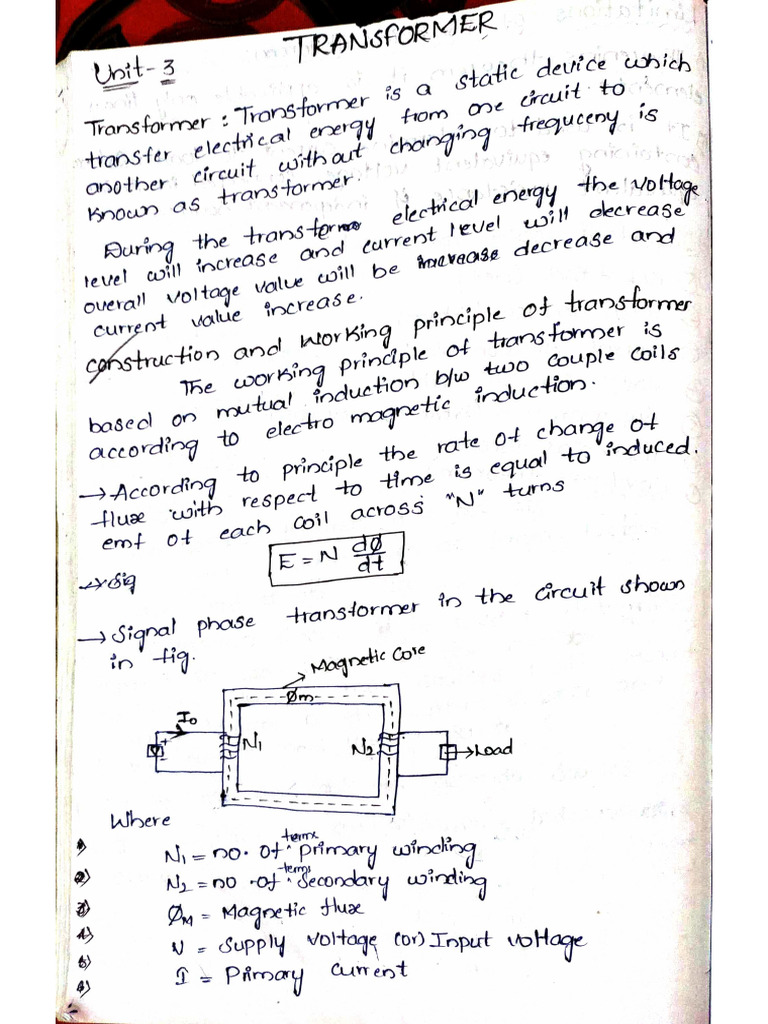 TRANSFORMER
Unit-3
Transformer : Transformer is a static device which
transfer electrical energy from one circuit to
another circuit without changing frequceny is
known as transformer.
During the transfor electrical energy the voltage
level will increase and current level will decrease
overall voltage value will be increase decrease and
current value increase.
construction and working principle of transformer
The working principle of transformer is
based on mutual induction b/w two couple coils
according to electro magnetic induction.
→ According to principle the rate of change of
flux with respect to time is equal to induced.
emf of each coil across "N" turns
E = N dø/dt
→ Sig
→ Signal phase transformer in the circuit shown
in fig.
Magnetic Core
Øm
I0
+
-
N1
N2
Load
Where
1) N1 = no. of terms primary winding
2) N2 = no. of terms Secondary winding
3) ØM = Magnetic flux
4) V = Supply voltage (or) Input voltage
5) I = Primary current
6)